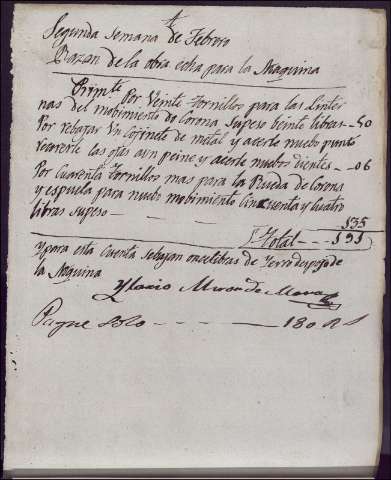 Segunda Semana de Febrero
Razon de la obra echa para la Maquina
Primte Por Veinte tornillos para las Linter
nas del movimiento de Corona Su peso beinte libras - 50
Por rebajar Un Cojinete de metal y acerle nuebo punto
recorerle las ojas a un peine y acerle nuebos dientes - 06
Por Cuarenta tornillos mas para la Rueda de Corona
y espuela para nuebo movimiento Cincuenta y Cuatro
libras su peso - 135
Total - 191
y para esta Cuenta se bajan onze libras de Yerro de
la Maquina
Miranda
Pague Solo - 180 Rs